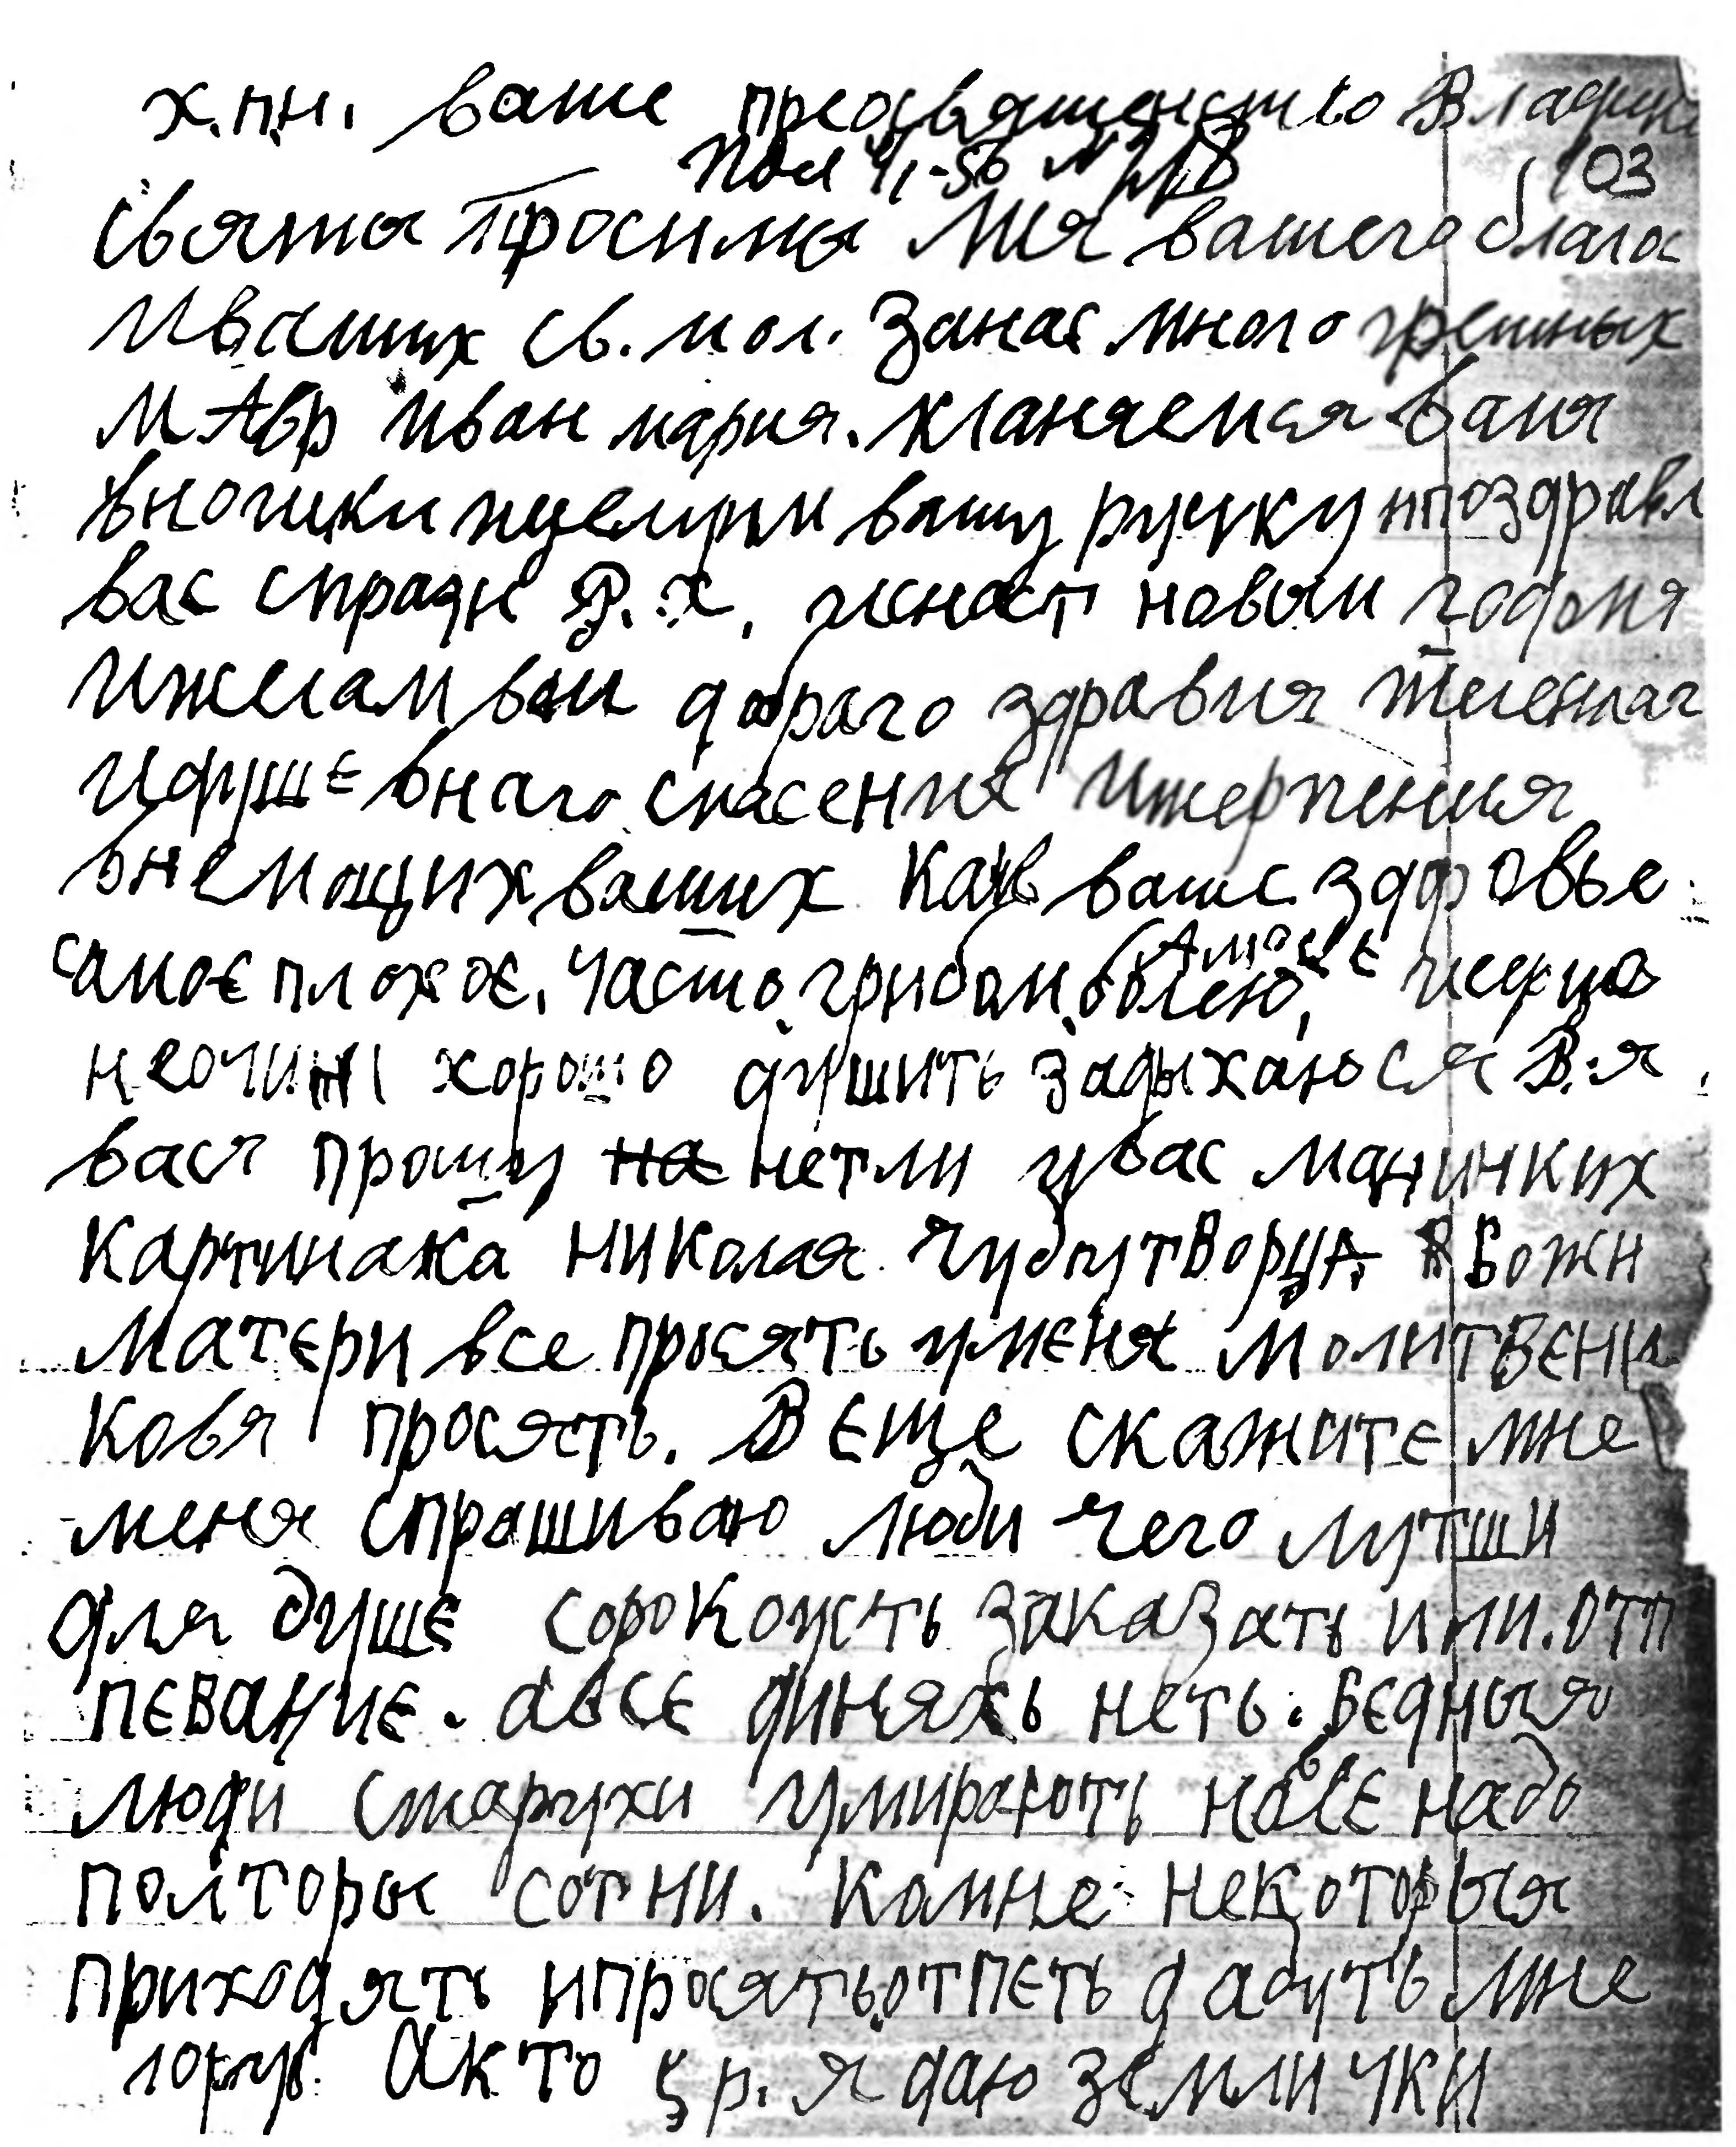 х.пн. ваше преосвященство Влады
Пол 4/1-56 N 103
святы просимы мя вашего блага
и ваших св. мол. за нас многогрешных
м Авр иван мария. кланяемся ваня
вношки ицелуем вашу ручку ипоздравл
вас спразн Р.Х. новым годомя
ижелам вам добраго здравия телеснаг
идушевнаго спасения итерпения
внемощих ваших как ваше здоровье
Амое
самое плохое. часто грибом болею,
неочинь хорошо душить задыхаюся В:я
вася прошу на нетли увас манинких
картинака николая чудоутворца Божи
матери все просять уменя молитвени
ковя просять. В еще скажите мне
меня спрашиваю люди чего лутши
для душе сорокоусть заказать или. отп
певание. авсе диняхь неть. бедныя
люди старухи умирають навсе надо
полторы сотни. камне некоторыя
приходять ипросять отпеть дадуть мне
10 руб. акто 5 р. я даю землички